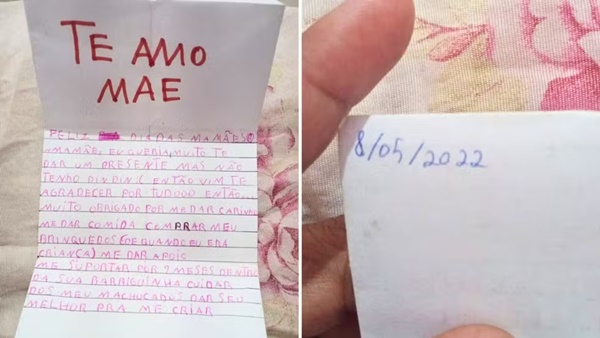 TE AMO
MAE
FELIZ DIA DAS MAMÃES
MAMÃE, EU QUERIA MUITO TE
DAR UM PRESENTE MAS NÃO
TENHO DINDIN :( ENTÃO VIM TE
AGRADECER POR TUDOOO ENTÃO...
MUITO OBRIGADO POR ME DAR CARINHO
ME DAR COMIDA COMPRAR MEU
BRINQUEDOS QUANDO EU ERA
CRIANÇA) ME DAR APOIO
ME SUPORTAR POR 9 MESES DENTRO
DA SUA BARRIGUINHA CUIDAR
DOS MEU MACHUCADOS DAR SEU
MELHOR PRA ME CRIAR
8/05/2022